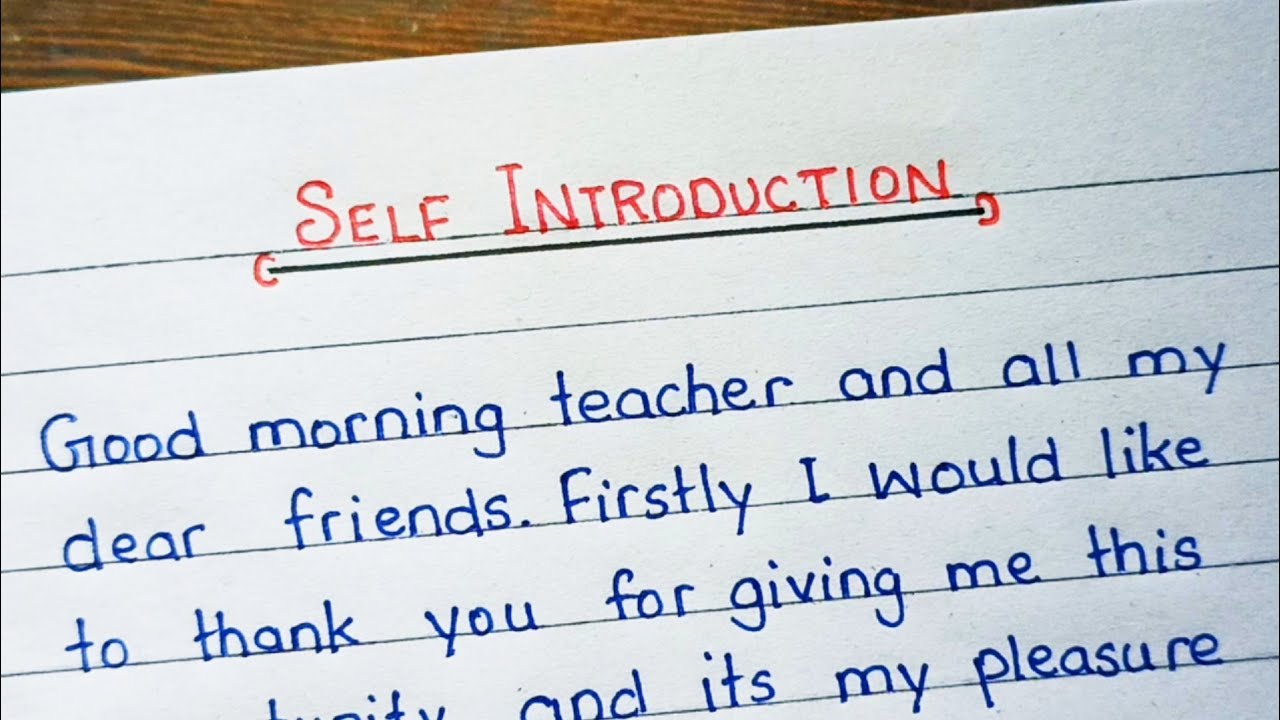 SELF INTRODUCTION
Good morning teacher and all my
dear friends. Firstly I would like
to thank you for giving me this
and its my pleasure